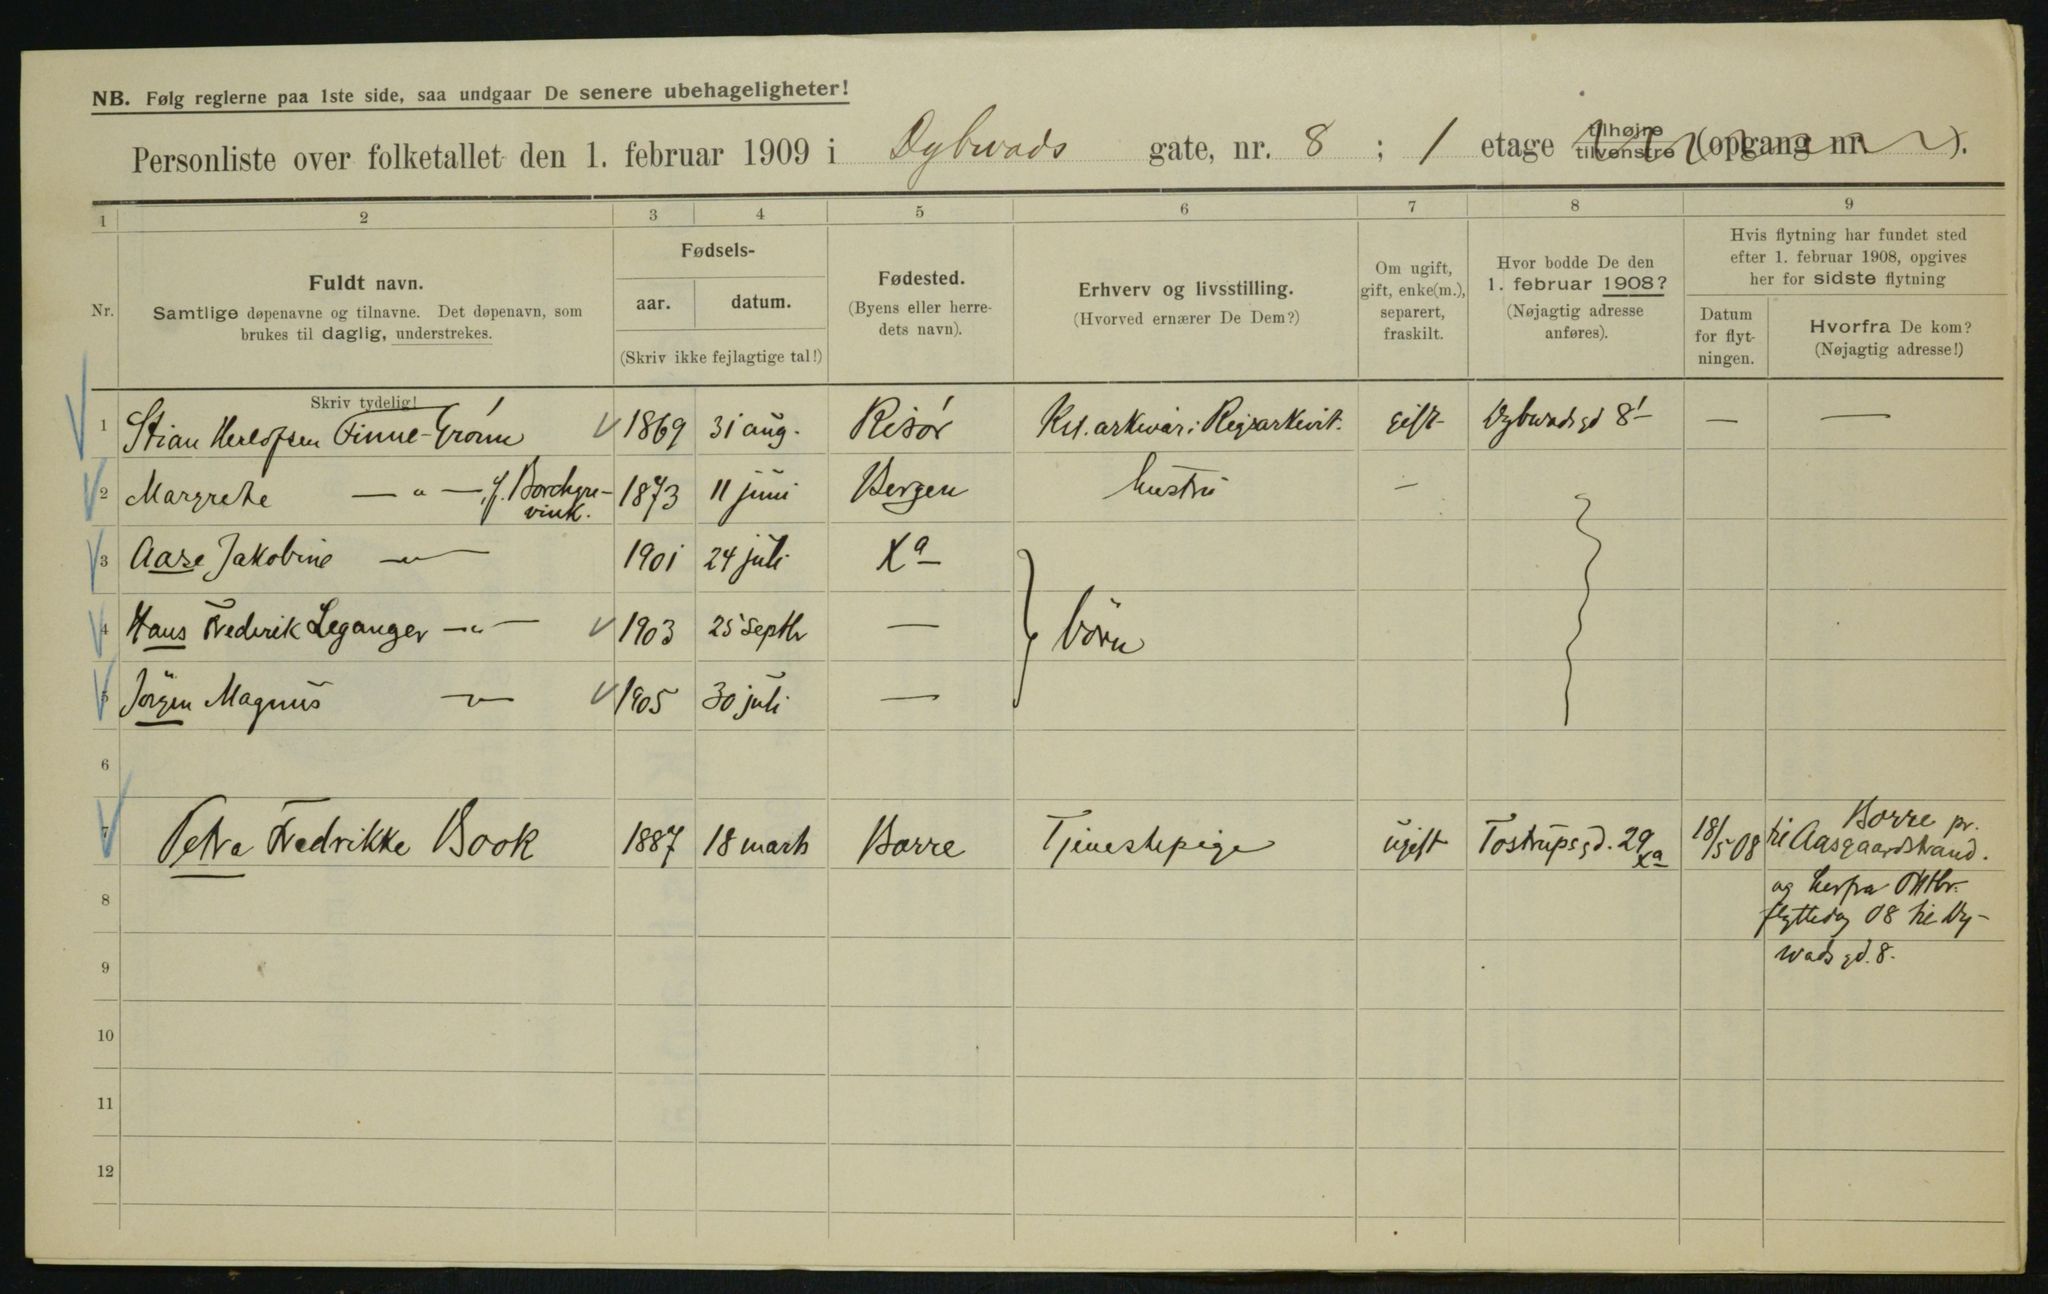 NB. Følg reglerne paa 1ste side, saa undgaar De senere ubehageligheter!
Personliste over folketallet den 1. februar 1909 i Dybwads gate, nr. 8 ; 1 etage tilhøjre tilvenstre (opgang nr. ).
1 2 3 4 5 6 7 8 9
Nr.
Fuldt navn.
Samtlige døpenavne og tilnavne. Det døpenavn, som
brukes til daglig, understrekes.
Fødsels-
aar. datum.
(Skriv ikke fejlagtige tal!)
Fødested.
(Byens eller herre-
dets navn).
Erhverv og livsstilling.
(Hvorved ernærer De Dem?)
Om ugift,
gift, enke(m.),
separert,
fraskilt.
Hvor bodde De den
1. februar 1908?
(Nøjagtig adresse
anføres).
Hvis flytning har fundet sted
efter 1. februar 1908, opgives
her for sidste flytning
Datum
for flyt-
ningen.
Hvorfra De kom?
(Nøjagtig adresse!)
Skriv tydelig!
1 Stian Herlofsen Finne-Grønn 1869 31 aug. Risør Kst. arkivar i Rigsarkivet. gift Dybwadsgd 8 I — —
2 Margrete — " — f. Borchgre-
vink. 1873 11 juni Bergen hustru —
3 Aase Jakobine — " — 1901 24 juli Xa
4 Hans Fredrik Leganger — " — 1903 25 septbr — } børn
5 Jörgen Magnus — " — 1905 30 juli —
6
7 Petra Fredrikke Book 1887 18 marts Borre Tjenestepige ugift Tostrupsgd. 29 Xa 18/5 08 til Borre pr.
Aasgaardstrand.
8 og herfra Oktbr.
flyttedag 08 til Dy-
9 wadsgd. 8.
10
11
12